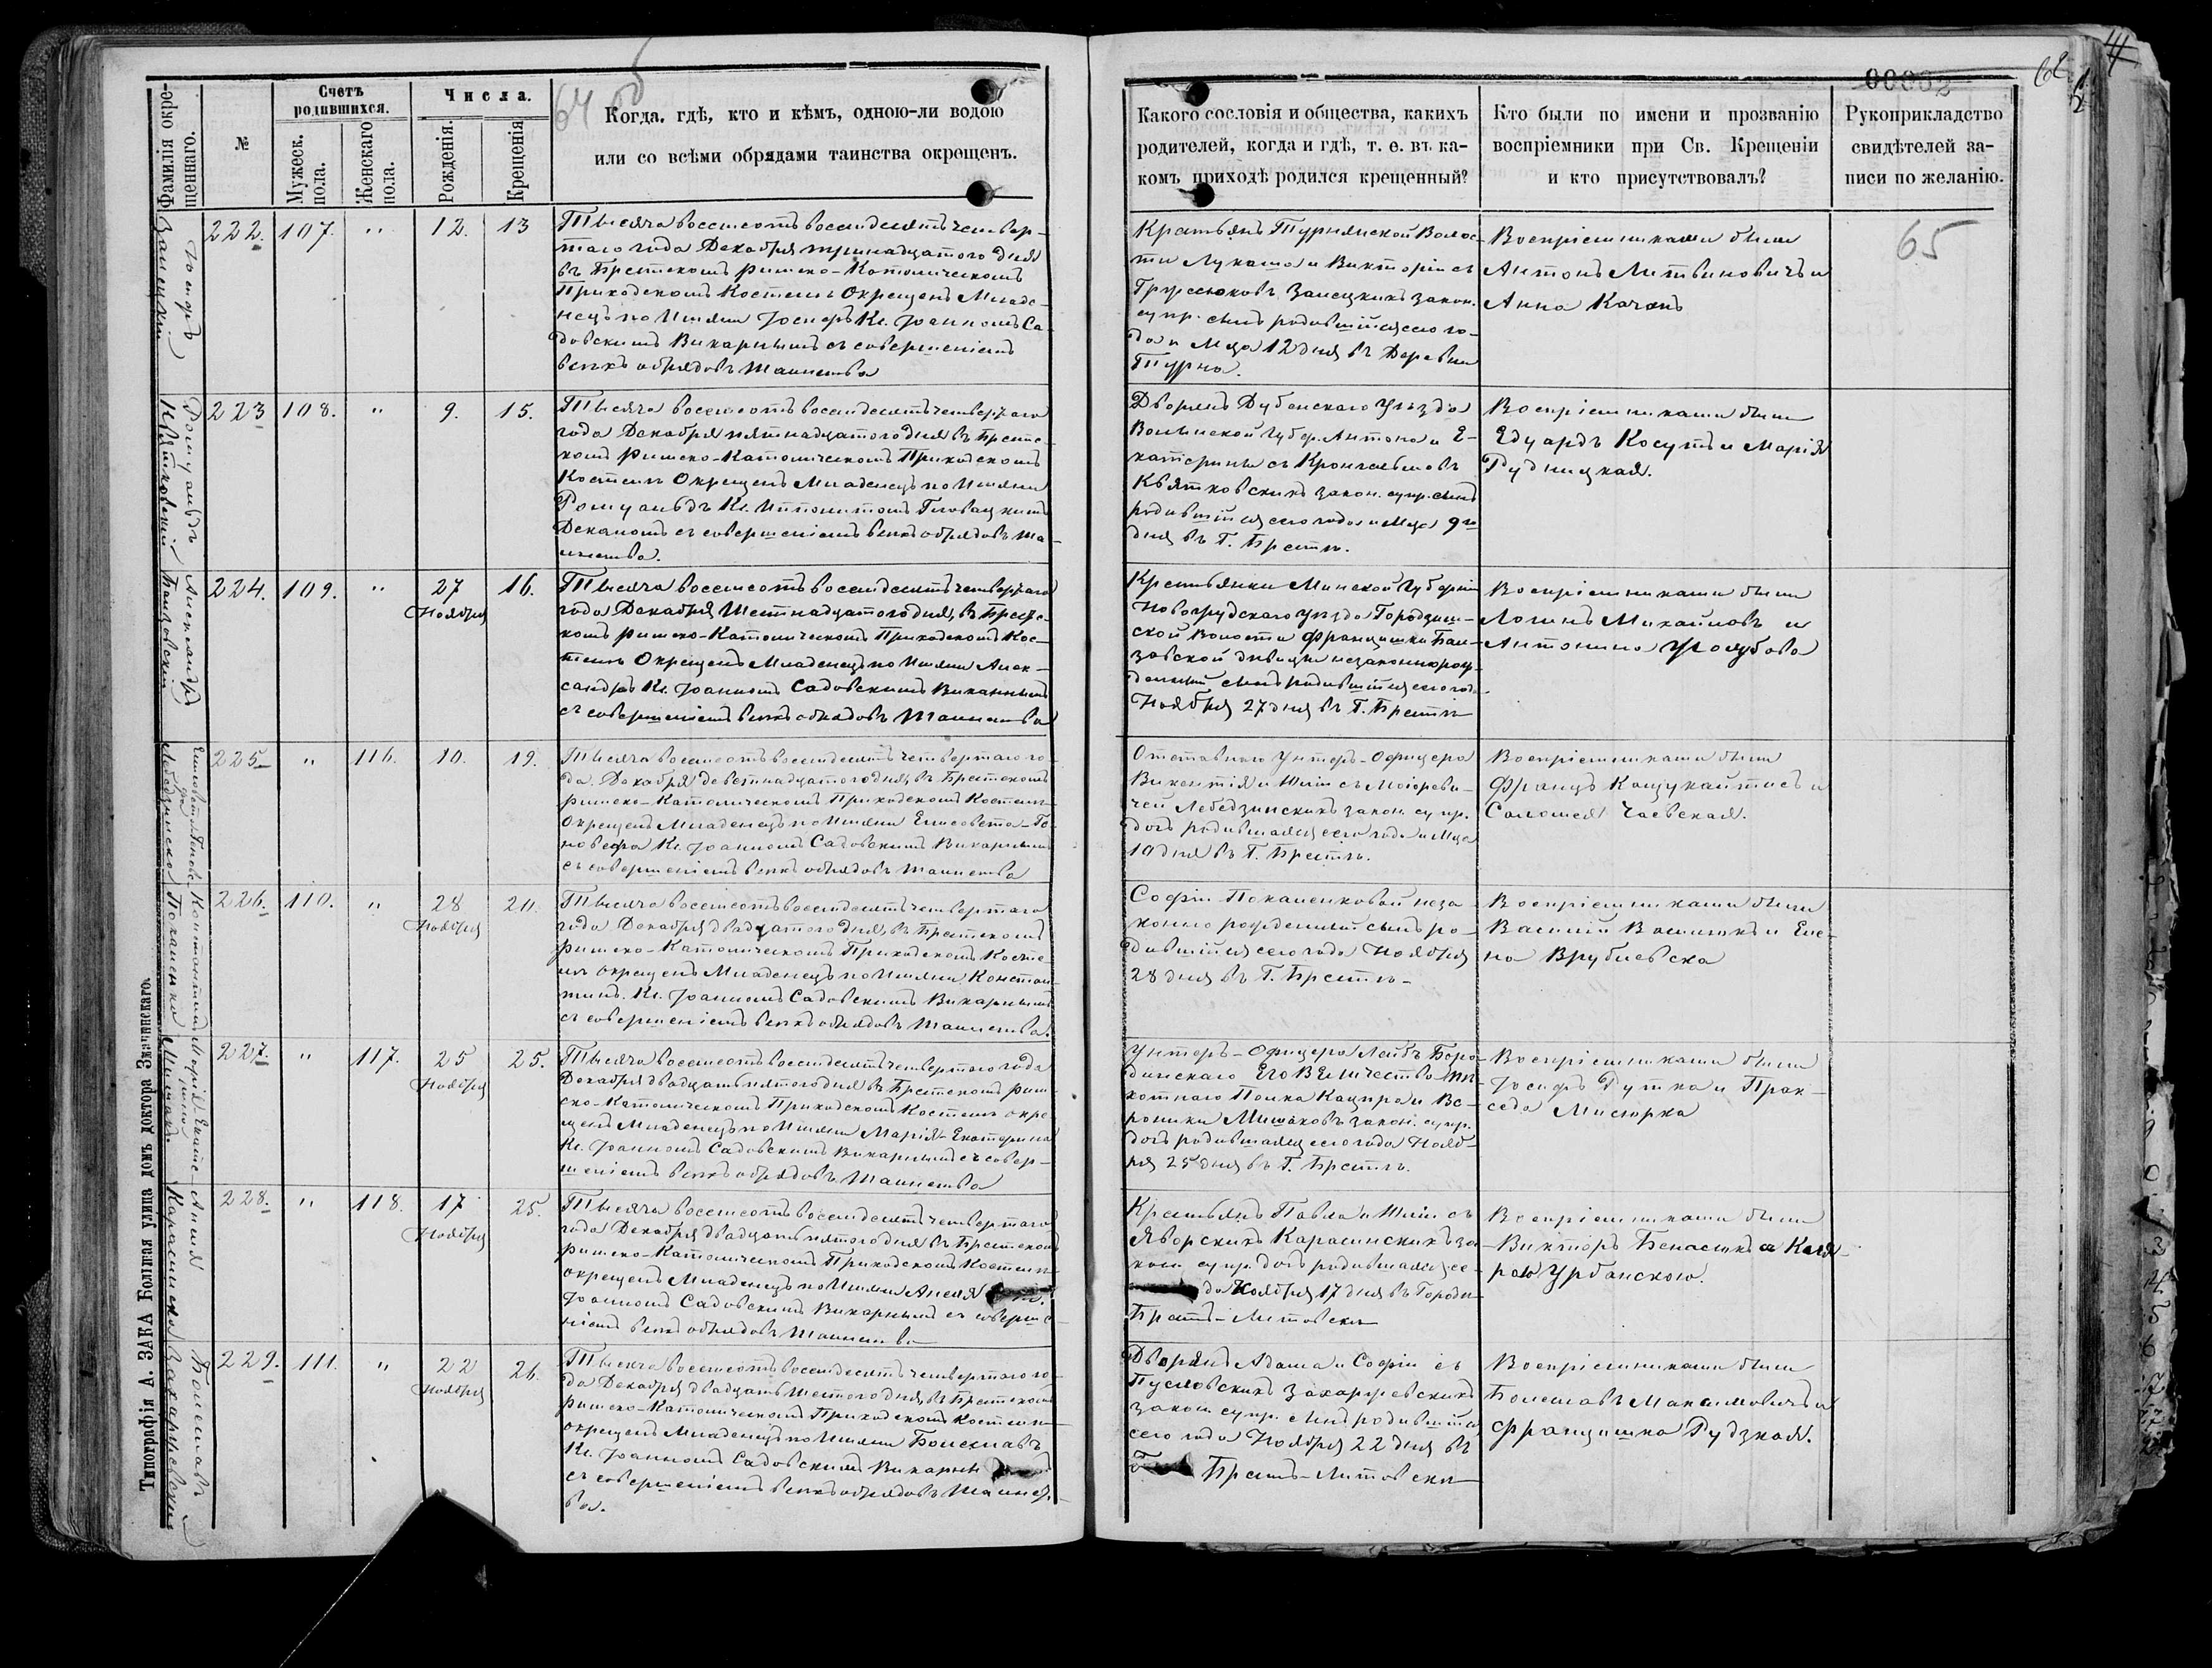 64 об
Фамилія окрещеннаго.
№
Счетъ родившихся.
Мужеск. пола.
Женскаго пола.
Числа.
Рожденія.
Крещенія
Когда. гдѣ, кто и кѣмъ, одною-ли водою
или со всѣми обрядами таинства окрещенъ.
Іосифъ
Залецкій
222.
107.
"
12.
13
Тысяча восемсотъ восемдесятъ четвер-
таго года Декабря тринадцатого дня
въ Брестскомъ Римско-Католическомъ
Приходскомъ Костелѣ Окрещенъ Младе-
нецъ по Имяни Іосифъ Кс. Іоанномъ Са-
довскимъ Викарнымъ съ совершеніемъ
всѣхъ обрядовъ Таинства
Ромуальдъ
Квятковскій
223
108.
"
9.
15.
Тысяча восемсотъ восемдесятъ четвертаго
года Декабря пятнадцатого дня въ Брестс-
комъ Римско-Католическомъ Приходскомъ
Костелѣ Окрещенъ Младенецъ по Имяни
Ромуальдъ Кс. Ипполитомъ Гловацкимъ
Деканомъ съ совершеніемъ всѣхъ обрядовъ Та-
инства.
Александръ
224.
109.
"
27
Ноября
16.
Тысяча восемсотъ восемдесятъ четвертаго
года Декабря Шестнадцатого дня, въ Брестс-
комъ Римско-Католическомъ Приходскомъ Кос-
телѣ Окрещенъ Младенецъ по Имяни Алек-
сандръ Кс. Іоанномъ Садовскимъ Викарнымъ
съ совершеніемъ всѣхъ обрядовъ Таинства
Елисавета Геновефа
Лебедзинска
225
"
116.
10.
19.
Тысяча восемсотъ восемдесятъ четвертаго го-
да Декабря девятнадцатого дня, въ Брестскомъ
Римско-Католическомъ Приходскомъ Костелѣ
Окрещенъ Младенецъ по Имяни Елисавета-Ге-
новефа Кс. Іоанномъ Садовскимъ Викарнымъ
съ совершеніемъ всѣхъ обрядовъ Таинства
Константинъ
226.
110.
"
28
Ноября
20.
Тысяча восемсотъ восемдесятъ четвертаго
года Декабря двадцатого дня, въ Брестскомъ
Римско-Католическомъ Приходскомъ Косте-
лѣ окрещенъ Младенецъ по Имяни Констан-
тинъ. Кс. Іоанномъ Садовскимъ Викарнымъ
съ совершеніемъ всѣхъ обрядовъ Таинства.
Марія-Екате-
рина
Мишакъ
227.
"
117.
25
Ноября
25.
Тысяча восемсотъ восемдесятъ четвертаго года
Декабря двадцать пятого дня въ Брестскомъ Рим-
ско-Католическомъ Приходскомъ Костелѣ окре-
щенъ Младенецъ по Имяни Марія-Екатерина
Кс. Іоанномъ Садовскимъ Викарнымъ съ совер-
шеніемъ всѣхъ обрядовъ Таинства
Карасинска
228.
"
118.
17
Ноября
25.
Тысяча восемсотъ восемдесятъ четвертаго
года Декабря двадцать пятого дня въ Брестскомъ
Римско-Католическомъ Приходскомъ Костелѣ
окрещенъ Младенецъ по Имяни
Іоанномъ Садовскимъ Викарнымъ съ соверше-
ніемъ всѣхъ обрядовъ Таинства
Болеславъ
Захаржевскій
229.
111.
"
22
Ноября
26.
Тысяча восемсотъ восемдесятъ четвертаго го-
да Декабря двадцать шестого дня, въ Брестскомъ
Римско-Католическомъ Приходскомъ Костелѣ
окрещенъ Младенецъ по Имяни Болеславъ
Кс. Іоанномъ Садовскимъ Викарнымъ
съ совершеніемъ всѣхъ обрядовъ Таинст-
ва.
Типографія А. ЗАКА Болѣная улица домъ доктора Значинскаго.
00002
Какого сословія и общества, какихъ
родителей, когда и гдѣ, т. е. въ ка-
комъ приходѣ родился крещенный?
Кто были по имени и прозванію
воспріемники при Св. Крещеніи
и кто присутствовалъ?
Рукоприкладство
свидѣтелей за-
писи по желанію.
65
Крестьянъ Турнянской Волос-
ти Лукаша и Викторіи съ
Залецкихъ закон.
супр. сынъ родившійся сего го-
да и Мца 12 дня въ Деревни
Турна.
Воспріемниками были
Антонъ Литвиновичъ и
Анна Качанъ
Дворянъ Дубенскаго Уѣзда
Волынской Губер. Антона и Е-
катерины съ
Квятковскихъ закон. супр. сынъ
родившійся сего года и Мца 9го
дня въ Г. Брестѣ.
Воспріемниками были
Едуардъ Косутъ и Марія
Рудницкая.
Крестьянки Минской Губерніи
Новогрудскаго уѣзда Городищ-
ской Волости Францишки Бал-
зовской дѣвицы незаконнорож-
денный сынъ родившійся сего года
Ноября 27 дня въ Г. Брестѣ
Воспріемниками были
Логинъ Михайловъ и
Антонина
Отставного Унтеръ-Офицера
Викентія и съ
Лебедзинскихъ закон. супр.
дочь родившаяся сего года и Мца
10 дня въ Г. Брестѣ.
Воспріемниками были
Францъ и
Саломея Чаевская.
Софіи Незa-
конно рожденный сынъ ро-
дившійся сего года Ноября
28 дня въ Г. Брестѣ-
Воспріемниками были
Василій и Еле-
на Врублевска
Унтеръ-Офицера Лейбъ Боро-
динскаго ЕГО ВЕличества Пѣ-
хотнаго Полка Каспра и Ве-
роники Мишаковъ закон. супр.
дочь родившаяся сего года Нояб-
ря 25 дня въ Г. Брестѣ.
Воспріемниками были
Іосифъ Рутка и Прак-
седа Мисюрка
Крестьянъ Павла и съ
Яворскихъ Карасинскихъ за-
кон. супр. дочь родившаяся се-
да Ноября 17 дня въ Городѣ
Брестъ-Литовскѣ
Воспріемниками были
Викторъ Бенасюкъ и Кля-
рою Урбанскою.
Дворянъ Адама и Софіи съ
Пусловскихъ Захаржевскихъ
закон. супр. сынъ родившійся
сего года Ноября 22 дня въ
Брестъ-Литовскѣ
Воспріемниками были
Болеславъ Максимовичъ и
Францишка Рудзкая.